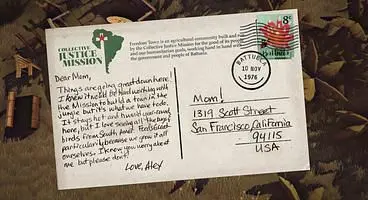 COLLECTIVE
JUSTICE
MISSION
Freedom Town is an agricultural community built and run
by the Collective Justice Mission for the good of its people
and our humanitarian goals, working hand in hand with
the government and people of Baltuela.
8¢
BATTUELA
10 NOV
1976
Dear Mom,
Things are going great down here!
I knew it would be hard working with
the Mission to build a town in the
jungle but it's what we have to do.
It stays hot and humid year-round
here, but I love seeing all the
birds from South America. Food's great
particularly because we grow it all
ourselves. I know you worry about
me but please don't!
Love, Alex
Mom!
1319 Scott Street
San Francisco, California
94115
USA